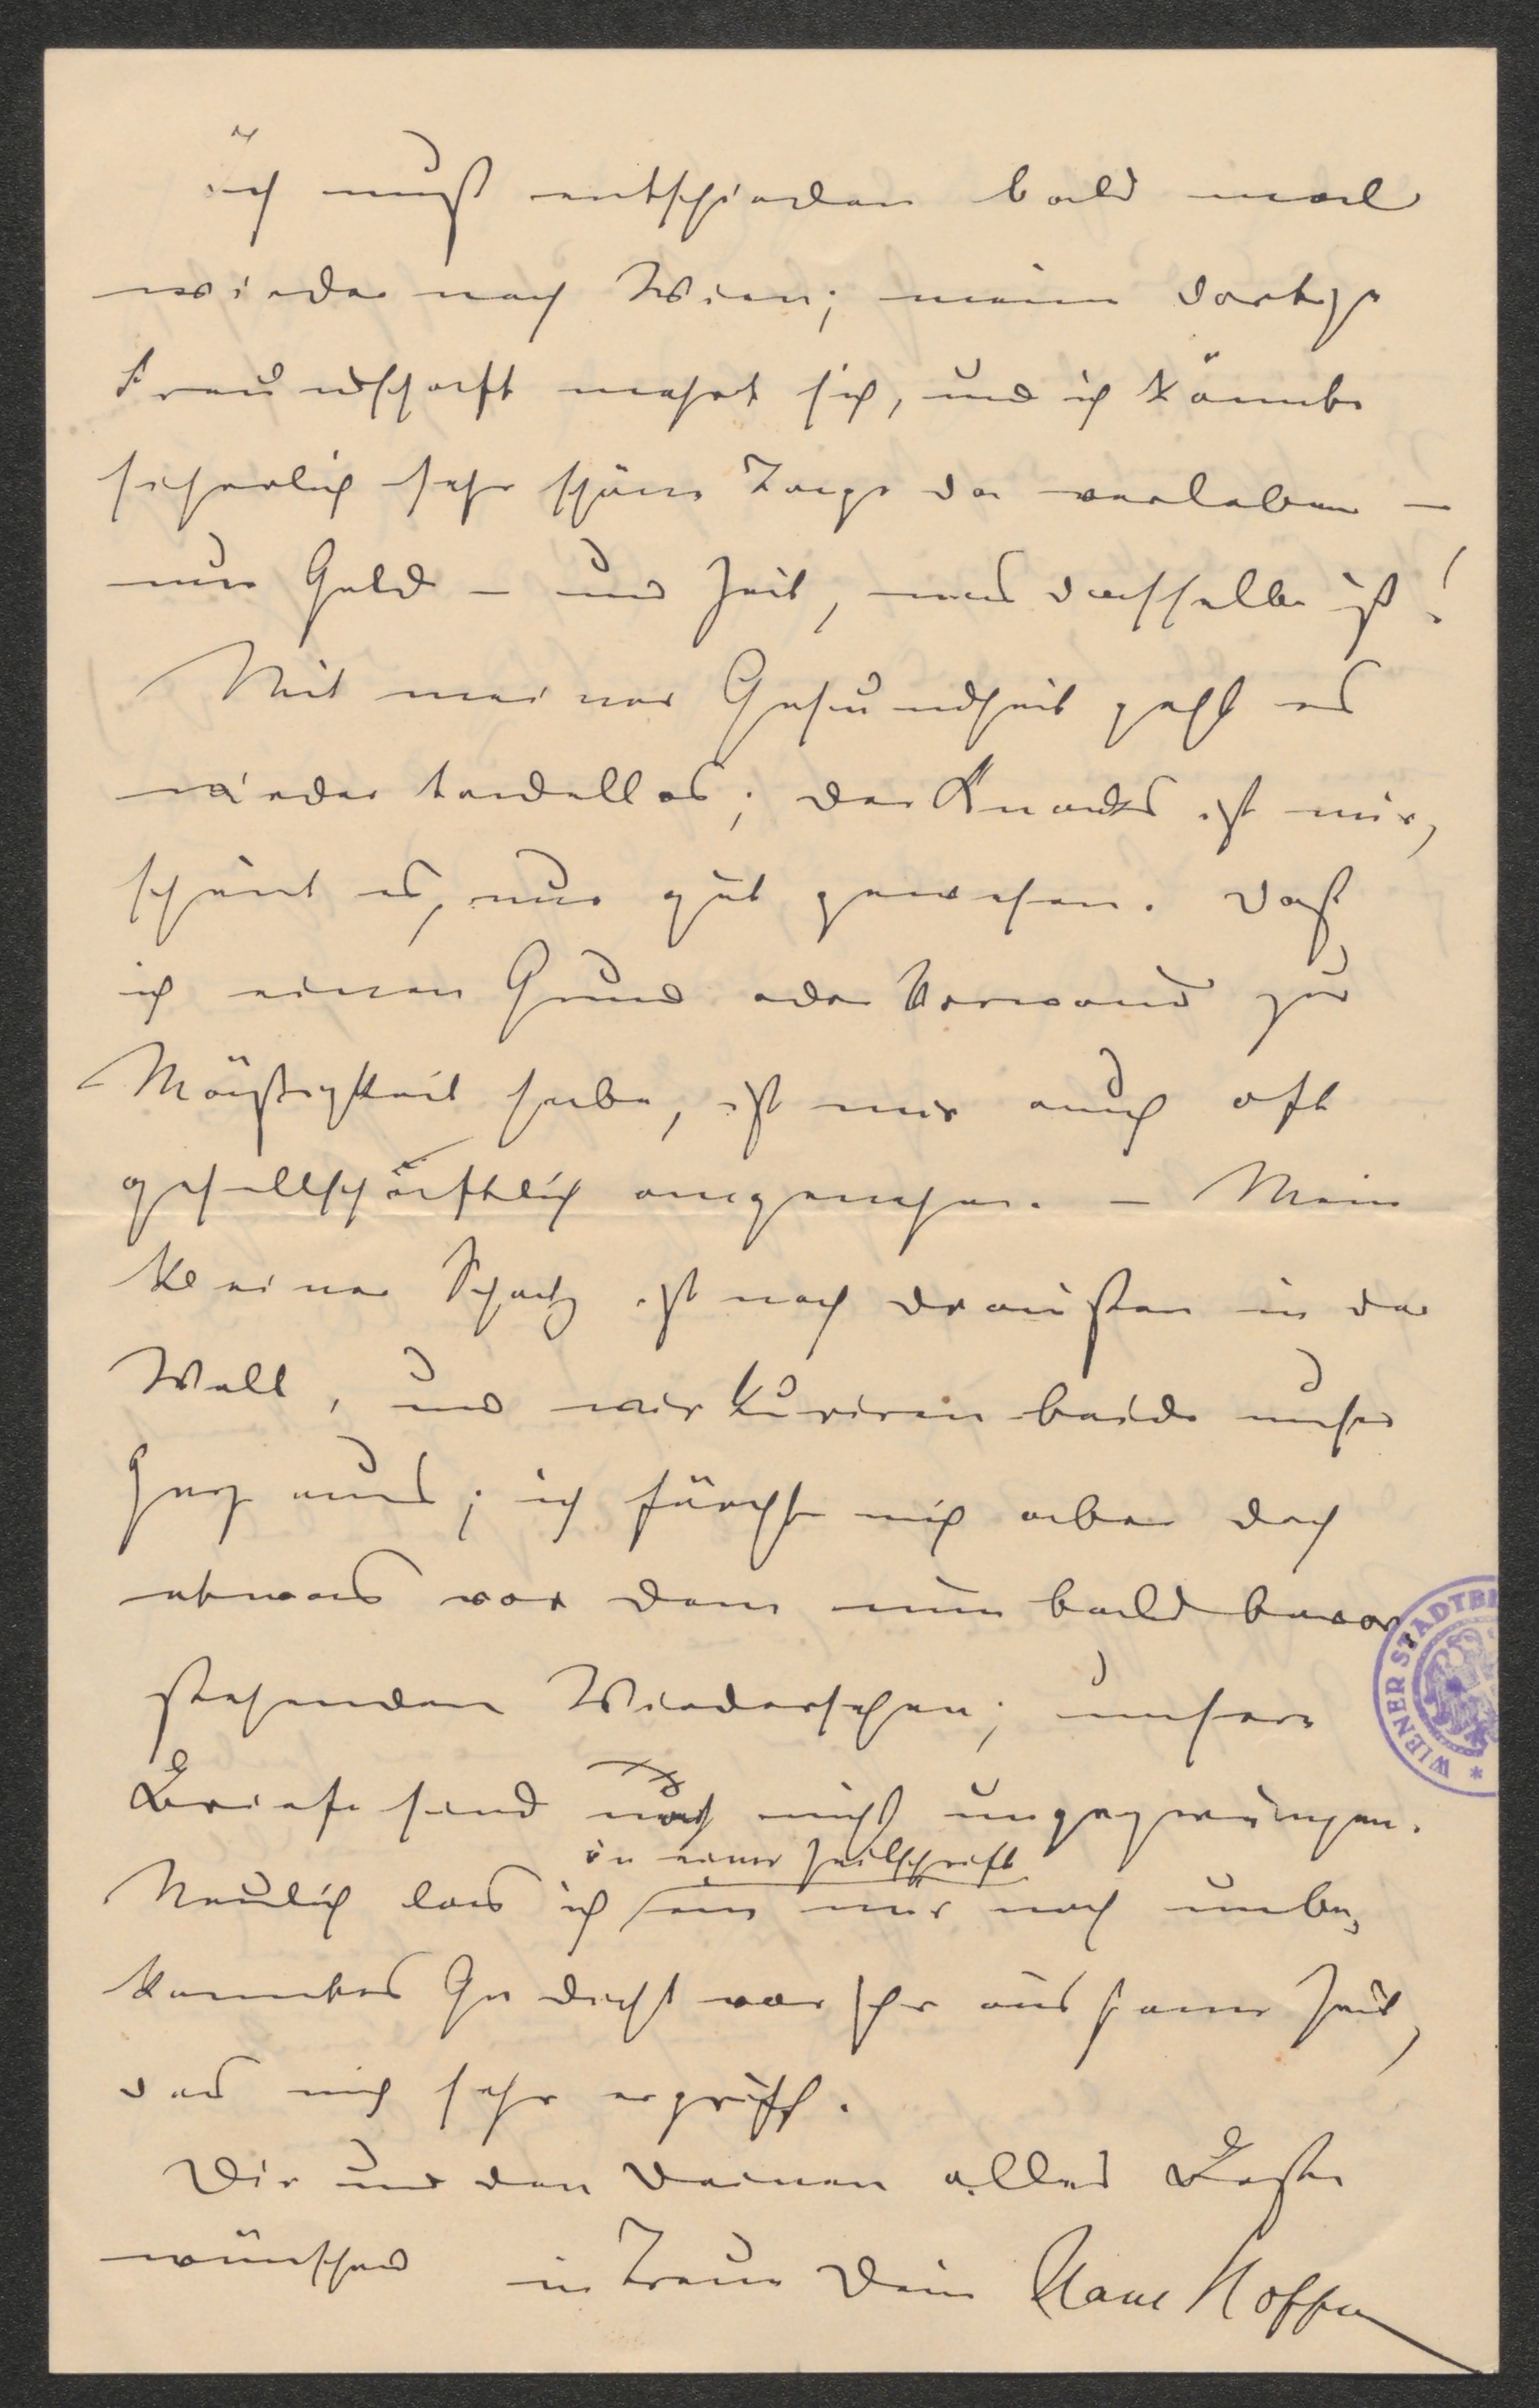 ich muß entschieden bald mal
wieder nach Wien; meine dortige
Freundschaft mehrt sich, und ich könnte
sicherlich sehr schöne Tage da verleben –
nur Geld – und Zeit, was dasselbe ist!
Mit meiner Gesundheit geht es
wieder tadellos; der Knacks ist mir,
scheint es, nur gut gewesen. Daß
ich einen Grund oder Vorwand zur
Mäßigkeit habe, ist mir auch oft
gesellschaftlich angenehm. – Mein
kleiner Schatz ist noch draußen in der
Welt, und wir kurieren beide unser
Herz aus; ich fürchte mich aber doch
etwas vor dem nun bald bevor
stehenden Wiedersehen; unsere
Briefe sind noch nicht ungezwungen.
in einer Zeitschrift
Neulich las ich ein mir noch unbe-
kanntes Gedicht von ihr aus jener Zeit,
das mich sehr ergriff.
Dir und den Deinen alles Beste
wünschend in Treue Dein Hans Hoffmann
WIENER STADTB